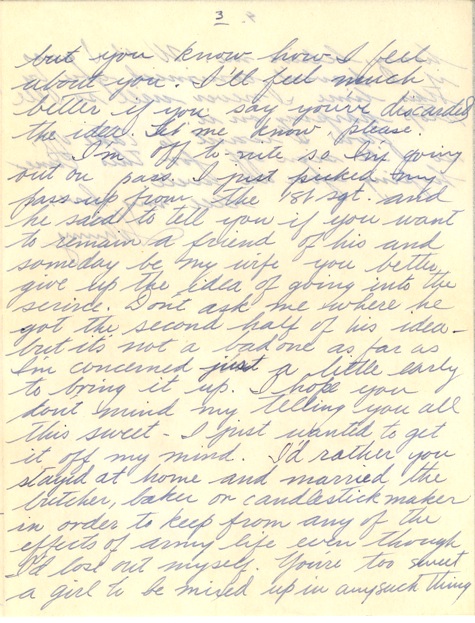 3
but you know how I feel
about you. I'll feel much
better if you say you've discarded
the idea. Let me know, please.
I'm off to-nite so I'm going
out on pass. I just picked my
pass up from the 1st sgt. and
he said to tell you if you want
to remain a friend of his and
someday be my wife you better
give up the idea of going into the
serivce. Don't ask me where he
got the second half of his idea -
but it's not a bad one as far as
I'm concerned just a little early
to bring it up. I hope you
don't mind my telling you all
this sweet - I just wanted to get
it off my mind. I'd rather you
stayed at home and married the
butcher, baker or candlestick maker
in order to keep from any of the
effects of army life even though
I'd lose out myself. You're too sweet
a girl to be mixed up in any such thing